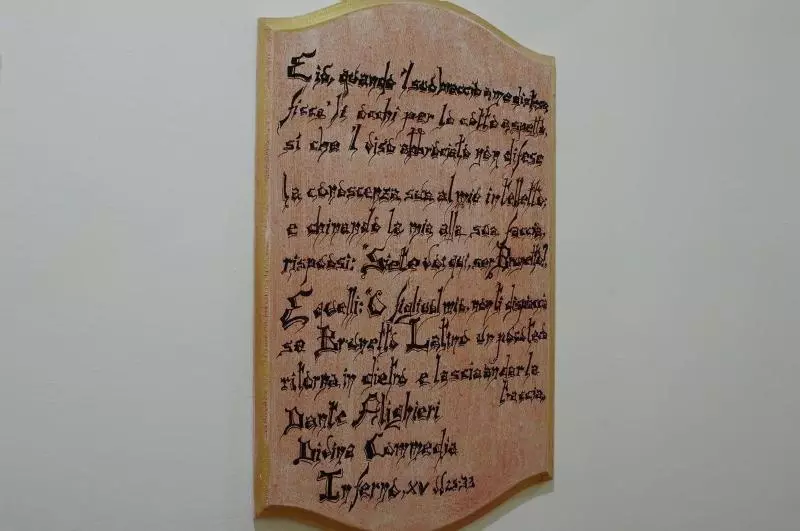 E io, quando 'l suo braccio a me distese,
ficca' li occhi per lo cotto aspetto,
sì che 'l viso abbrucato non difese
la conoscenza sua al mio intelletto;
e chinando la mia alla sua faccia,
risposi: "Siete voi qui, ser Brunetto?
E quelli: "O figliuol mio, non ti dispiaccia
se Brunetto Latino un poco teco
ritorna in dietro e lascia andar la
traccia.
Dante Alighieri
Divina Commedia
Inferno, XV